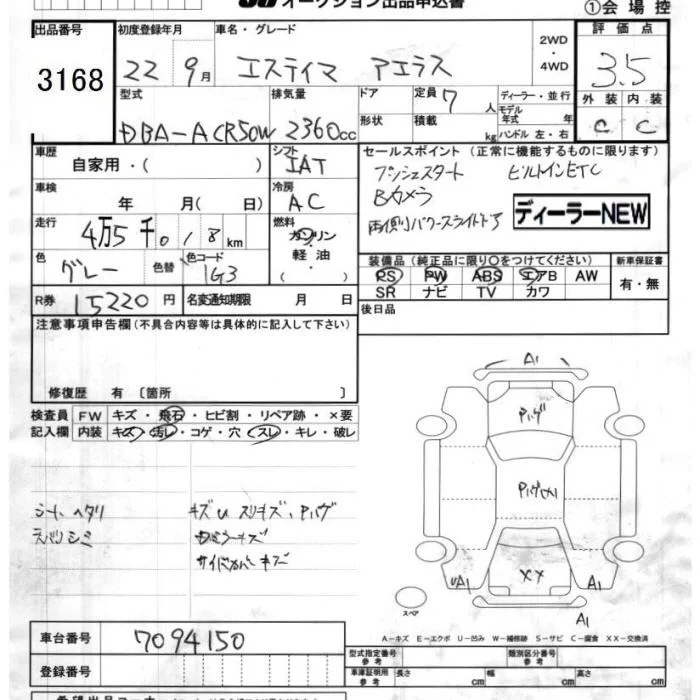 オークション出品申込書
①会場控
出品番号 初度登録年月 車名・グレード 2WD・4WD 評価点
3168 22 9月 エスティマ アエラス 3.5
型式 排気量 ドア 定員 7人 ディーラー・並行 外装 内装
モデル年式 年
DBA-ACR50W 2360cc 形状 積載 kg ハンドル 左・右 C C
車歴 シフト セールスポイント (正常に機能するものに限ります)
自家用・( ) IAT プッシュスタート ビルトインETC
車検 冷房 Bカメラ
年 月( 日) AC 両側パワースライドドア ディーラーNEW
走行 燃料
4万5千018km ガソリン・軽油・( )
色 色替 色コード 装備品 (純正品に限り○をつけてください) 新車保証書
グレー 1G3 PS PW ABS エアB AW 有・無
SR ナビ TV カワ
R券 15220円 名変通知期限 月 日 後日品
注意事項申告欄(不具合内容等は具体的に記入して下さい)
修復歴 有 〔箇所 〕
検査員 FW キズ・飛石・ヒビ割・リペア跡・×要
記入欄 内装 キズ・汚レ・コゲ・穴・スレ・キレ・破レ
シートヘタリ キズU スリキズ、Pハゲ
サイドカバーキズ
A1
Pハゲ
XX
UA1 A1
A1
スペア
A—キズ E—エクボ U—凹み W—補修跡 S—サビ C—腐食 XX—交換済
車台番号 7094150
型式指定番号 参考 類別区分番号 参考
登録番号 車庫証明用 参考 長さ cm 幅 cm 高さ cm
希望出品コーナー